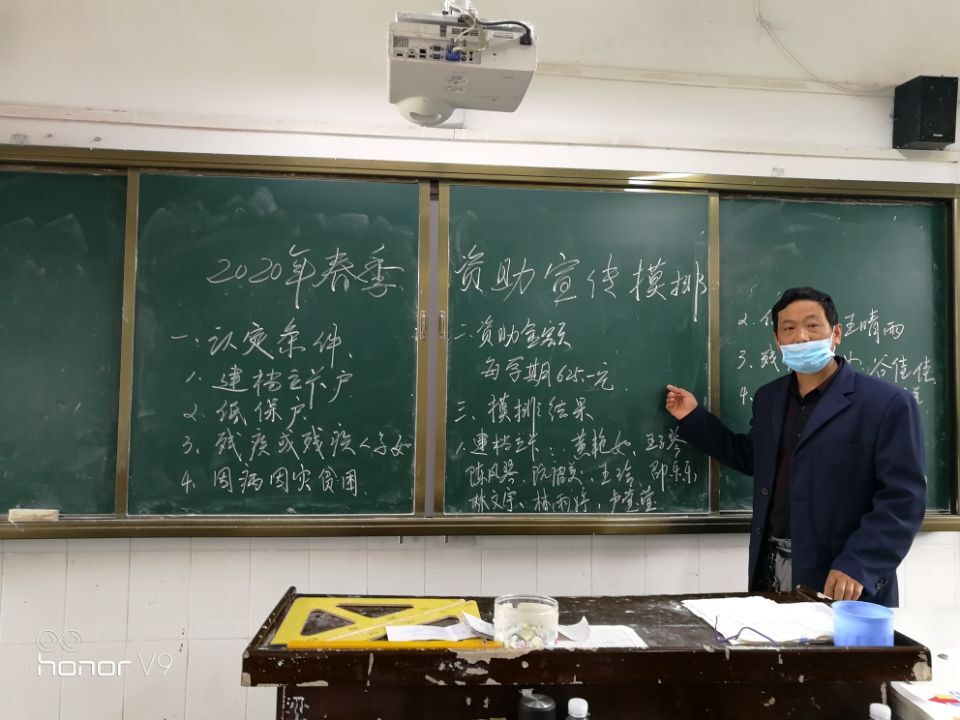 2020年春季 资助宣传摸排
一、认定条件、
1、建档立卡户
2、低保户
3、残疾或残疾人子女
4、因病因灾贫困
二、资助金额
每学期625元
三、摸排结果
1、建档立卡：黄艳如、王琴
陈凤 王玲、邵乐乐
林文宇、林雨婷、卢萱萱
2、 王晴雨
3、残 谷佳佳
4、
honor V9